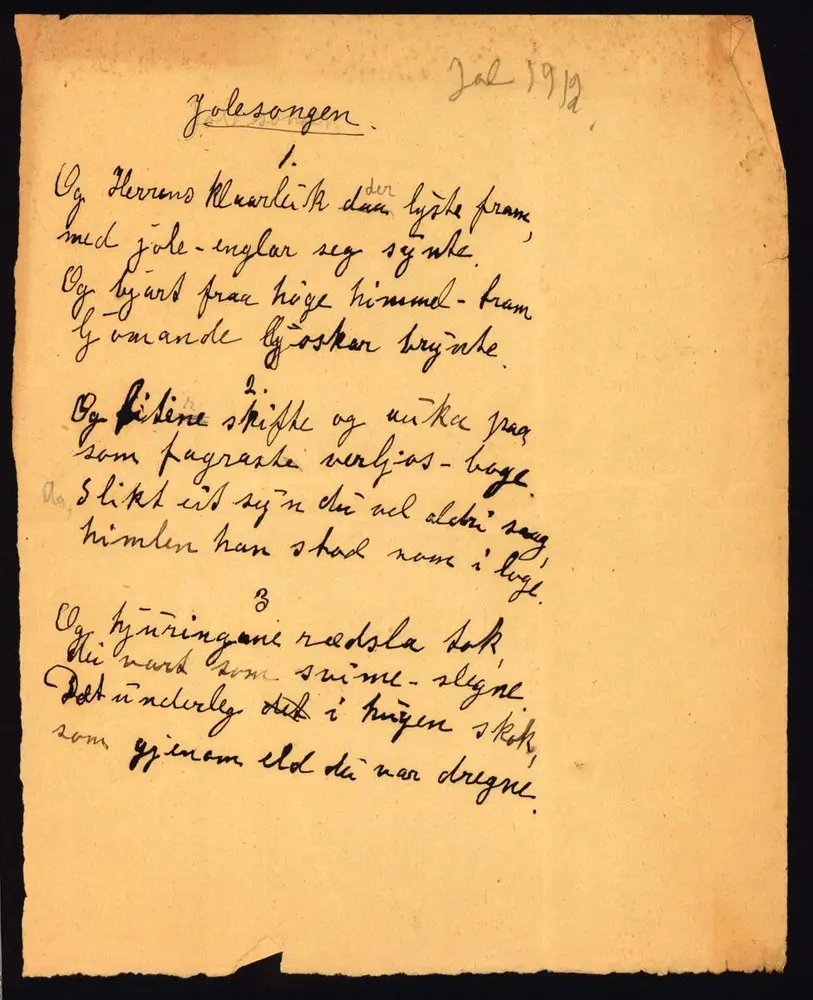 Jol 1912.
Jolesongen.
1.
Og Herrens klaarleik daa der lyste fram,
med jole-englar seg synte.
Og bjart fraa høge himmel-bram
ljómande ljoskar brynte.
2.
Og litine skifte og auka paa,
som fagraste verljos-boge.
Aa, Slikt eit syn du vel aldri saag,
himlen han stod som i loge.
3
Og hjuringane rædsla tok,
dei vart som svime-slegne.
Det underleg det i hugen skok,
som gjenom eld dei var dregne.